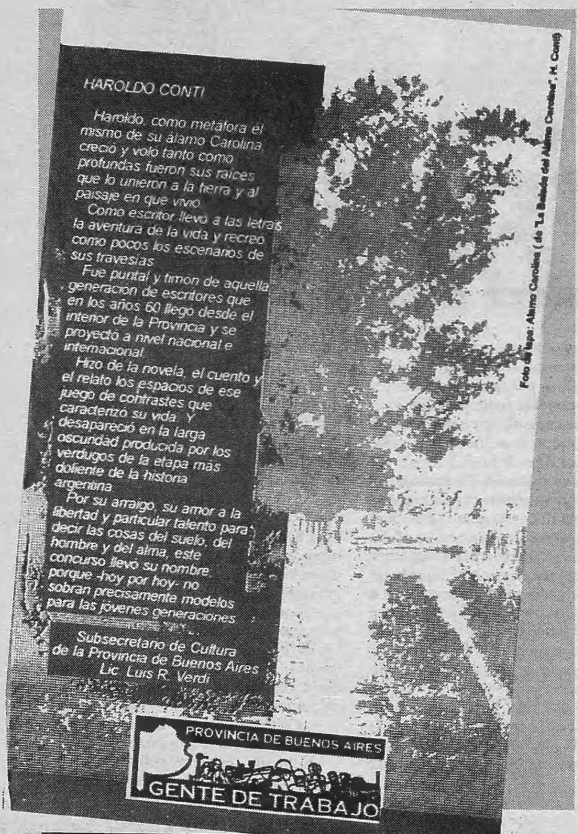 HAROLDO CONTI
Haroldo, como metáfora el
mismo de su álamo Carolina,
creció y voló tanto como
profundas fueron sus raíces
que lo unieron a la tierra y al
paisaje en que vivió.
Como escritor llevó a las letras
la aventura de la vida y recreó
como pocos los escenarios de
sus travesías.
Fue puntal y timón de aquella
generación de escritores que
en los años 60 llegó desde el
interior de la Provincia y se
proyectó a nivel nacional e
internacional.
Hizo de la novela, el cuento y
el relato los espacios de ese
juego de contrastes que
caracterizó su vida. Y
desapareció en la larga
oscuridad producida por los
verdugos de la etapa más
doliente de la historia
argentina.
Por su arraigo, su amor a la
libertad y particular talento para
decir las cosas del suelo, del
hombre y del alma, este
concurso llevó su nombre
porque -hoy por hoy- no
sobran precisamente modelos
para las jóvenes generaciones.
Subsecretario de Cultura
de la Provincia de Buenos Aires
Lic. Luis R. Verdi
PROVINCIA DE BUENOS AIRES
GENTE DE TRABAJO
Foto de tapa: Alamo Carolina ( de "La Balada del Alamo Carolina", H. Conti)